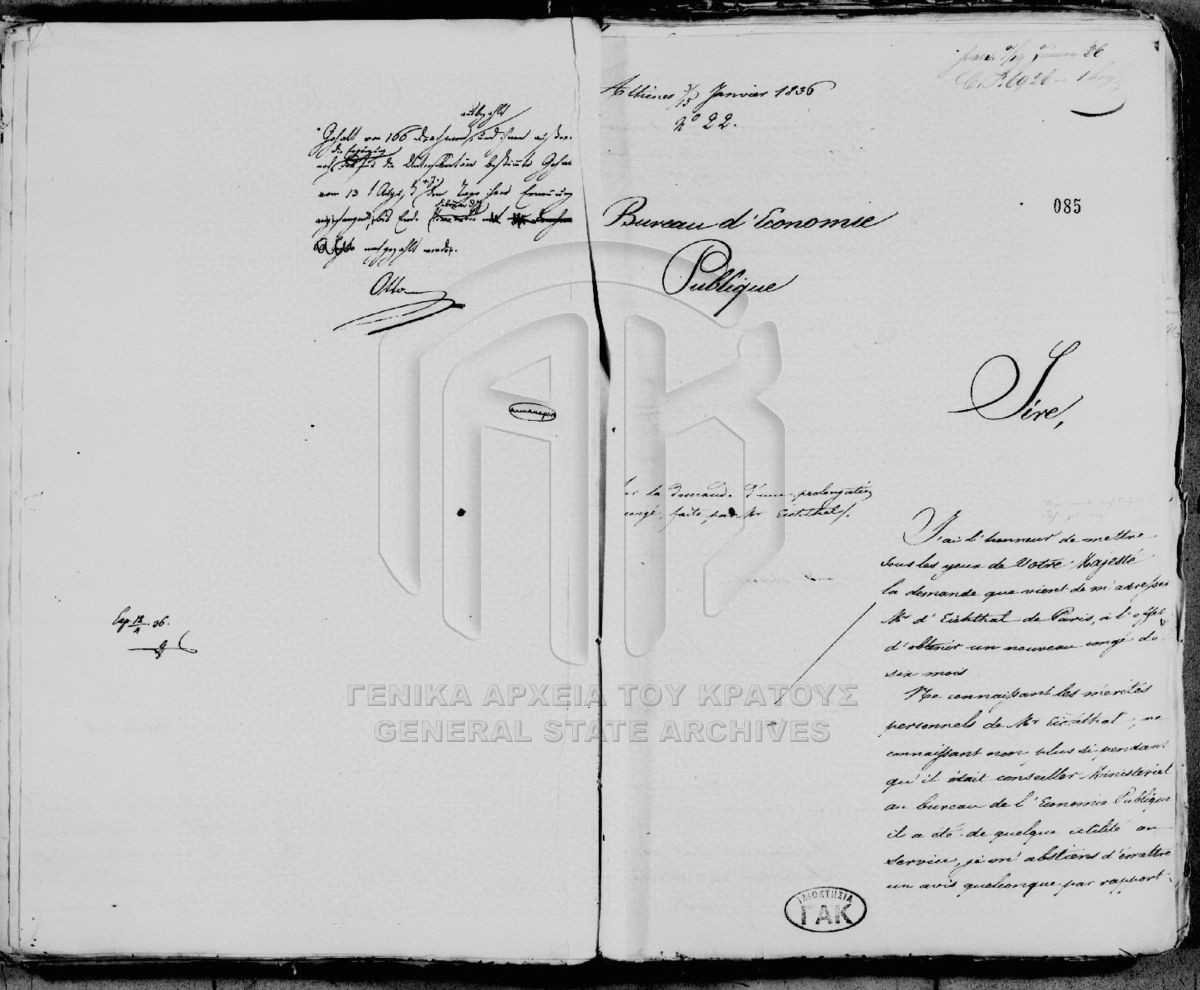 ausbezahlt
Gehalt von 166 Drachmen, und ihnen außer
die
vom 13 1 den Tage ihrer Ernennung
angefangen, bis Ende
nachgezahlt werden.
Otto
Exp. 36.
Athènes 3/15 Janvier 1836
Nº 22.
085
Bureau d'Economie
Publique
Sire,
la demande d'une prolongation
congé, faite par Mr Eichthal.
J'ai l'honneur de mettre
sous les yeux de Votre Majesté
la demande que vient de m'adresser
Mr d'Eichthal de Paris, à l'effet
d'obtenir un nouveau congé de
six mois.
Ne connaissant les mérites
personnels de Mr Eichthal, ne
connaissant non plus si pendant
qu'il était conseiller Ministériel
au bureau de l'Economie Publique
il a été de quelque utilité au
service, je m'abstiens d'émettre
un avis quelconque par rapport
ΓΕΝΙΚΑ ΑΡΧΕΙΑ ΤΟΥ ΚΡΑΤΟΥΣ
GENERAL STATE ARCHIVES
ΙΔΙΟΚΤΗΣΙΑ
ΓΑΚ